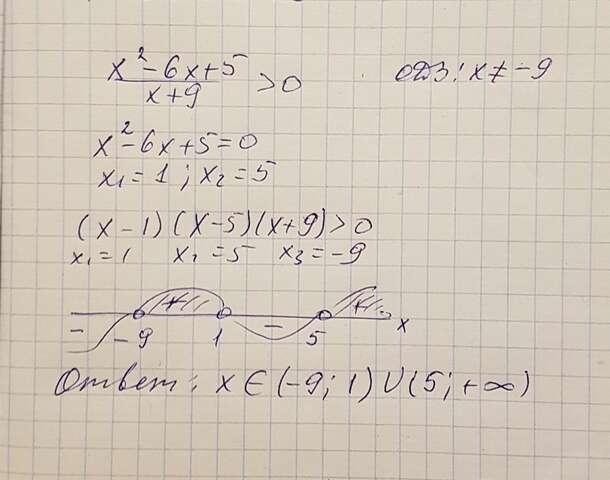 x²-6x+5 / x+9 > 0 ОДЗ: x ≠ -9
x²-6x+5=0
x₁=1; x₂=5
(x-1)(x-5)(x+9)>0
x₁=1 x₂=5 x₃=-9
- + - + x
-9 1 5
Ответ: x∈(-9; 1)∪(5; +∞)